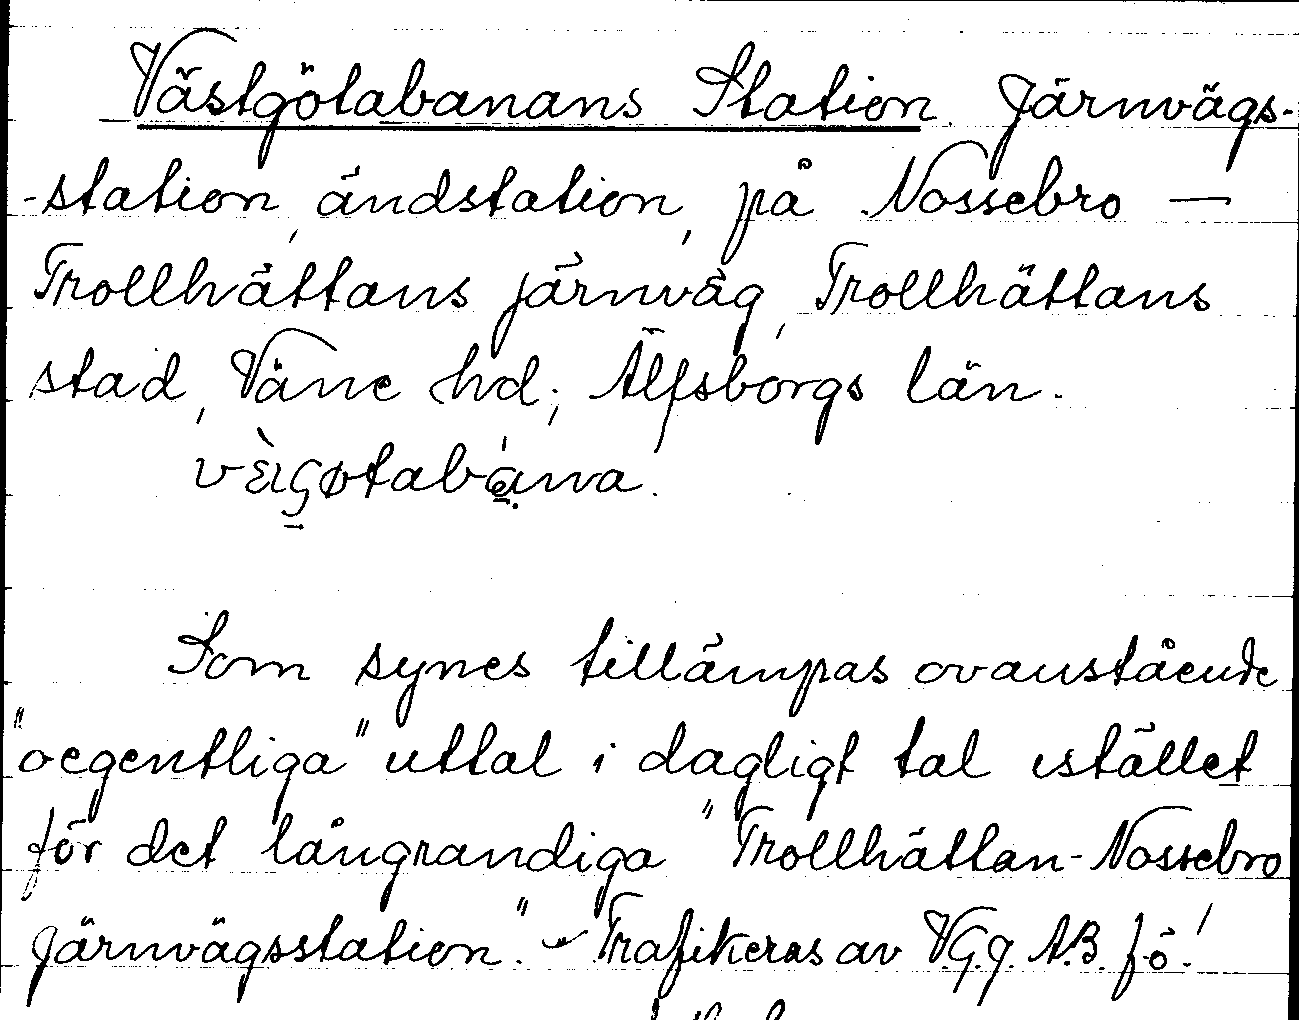 Västgötabanans Station. Järnvägs-
-station, ändstation, på Nossebro —
Trollhättans järnväg, Trollhättans
stad, Väne hd; Älfsborgs län.
Som synes tillämpas ovanstående
"oegentliga" uttal i dagligt tal istället
för det långrandiga "Trollhättan-Nossebro
Järnvägsstation". – Trafikeras av V.G.J. A.B. f.ö.!